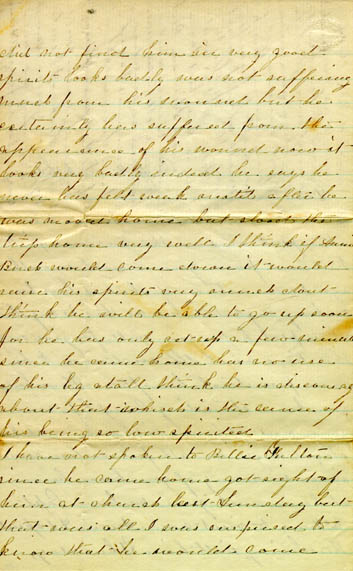 did not find him in very good
spirits looks badly was not suffering
much from his wound but he
certainly has suffered from the
appearance of his wound now it
looks very badly indeed he says he
never has felt weak until after he
was moved home but stood the
trip home very well I think if
Buck would come down it would
raise his spirits very much dont
think he will be able to go up soon
for he has only set up a few minutes
since he came home has no use
of his leg atall think he is discouraged
about that which is the cause of
his being so low spirited
I have not spoken to Billie Fulton
since he came home got sight of
him at church last Sunday but
that was all I was surprised to
know that he would come